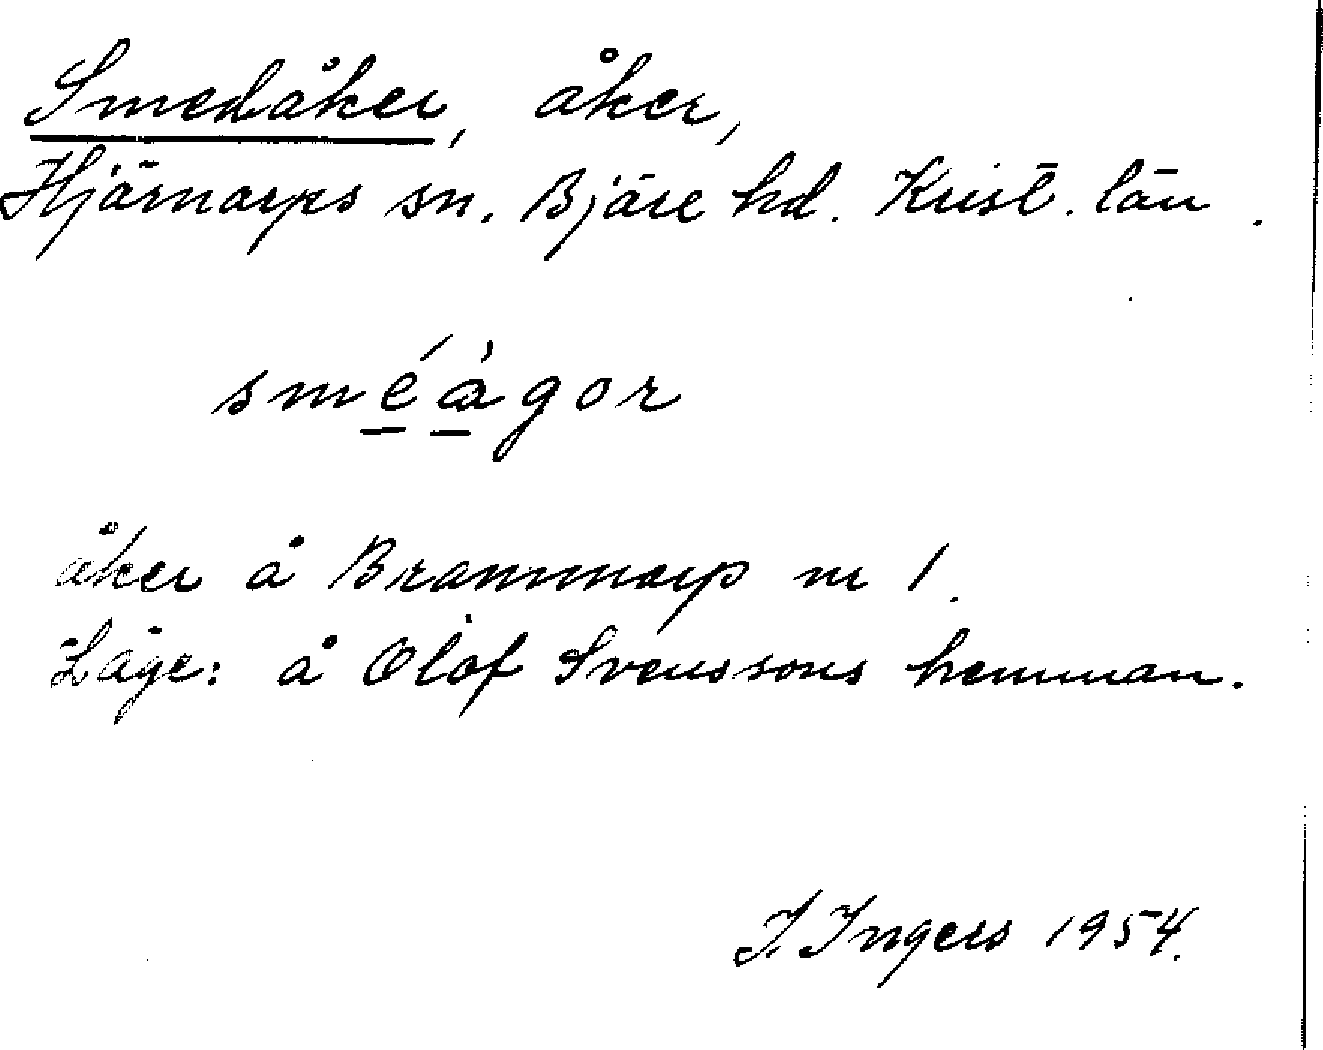 Smedåker, åker,
Hjärnarps sn. Bjäre hd. Krist. län.
sméàgor
åker å Brammarp nr 1.
Läge: å Olof Svenssons hemman.
I. Ingers 1954.